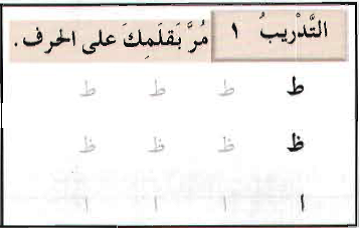 التَّدْرِيبُ ١ مُرَّ بَقلَمِكَ على الحرف .
ط ط ط ط
ظ ظ ظ ظ
ا ا ا ا